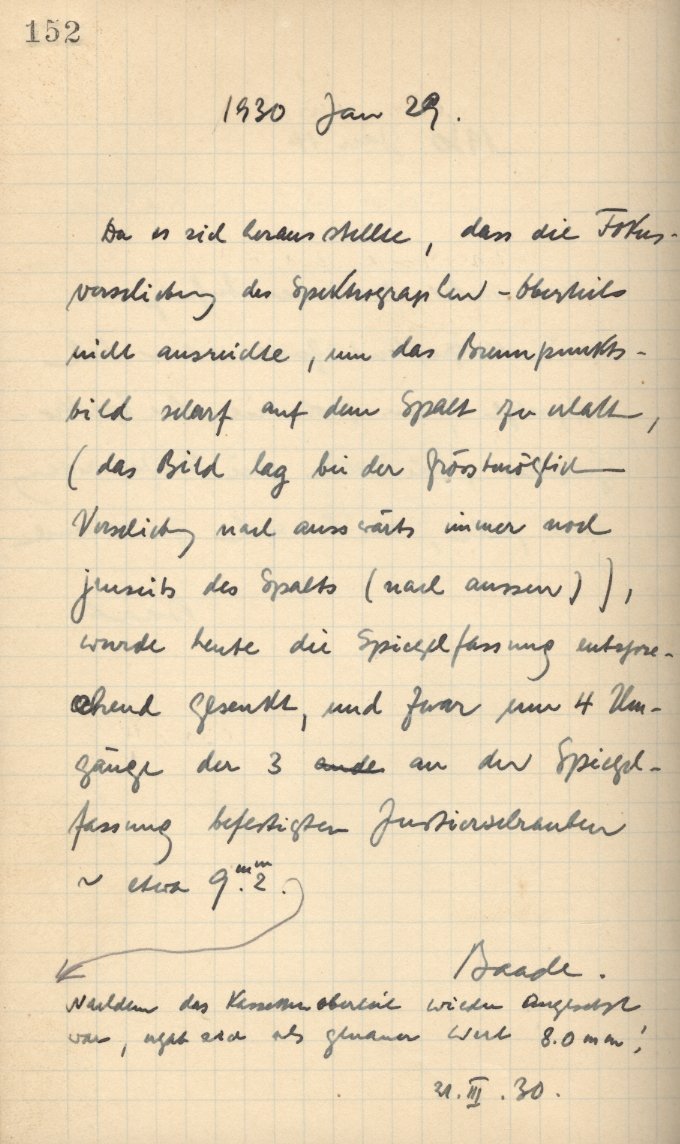 152
1930 Jan 29.
Da es sich herausstellte, dass die Fokus-
verschiebung des Spektrographen-Oberteils
nicht ausreichte, um das Brennpunkts-
bild scharf auf dem Spalt zu erhalten,
(das Bild lag bei der grösstmöglichen
Verschiebung nach auswärts immer noch
jenseits des Spalts (nach aussen)),
wurde heute die Spiegelfassung entspre-
chend gesenkt, und zwar um 4 Um-
gänge der 3 an der Spiegel-
fassung befestigten Justierschrauben
~ etwa 9.mm2.
Baade.
Nachdem das Kassettenoberteil wieder angesetzt
war, ergab sich als genauer Wert 8.0 mm!
21.III.30.